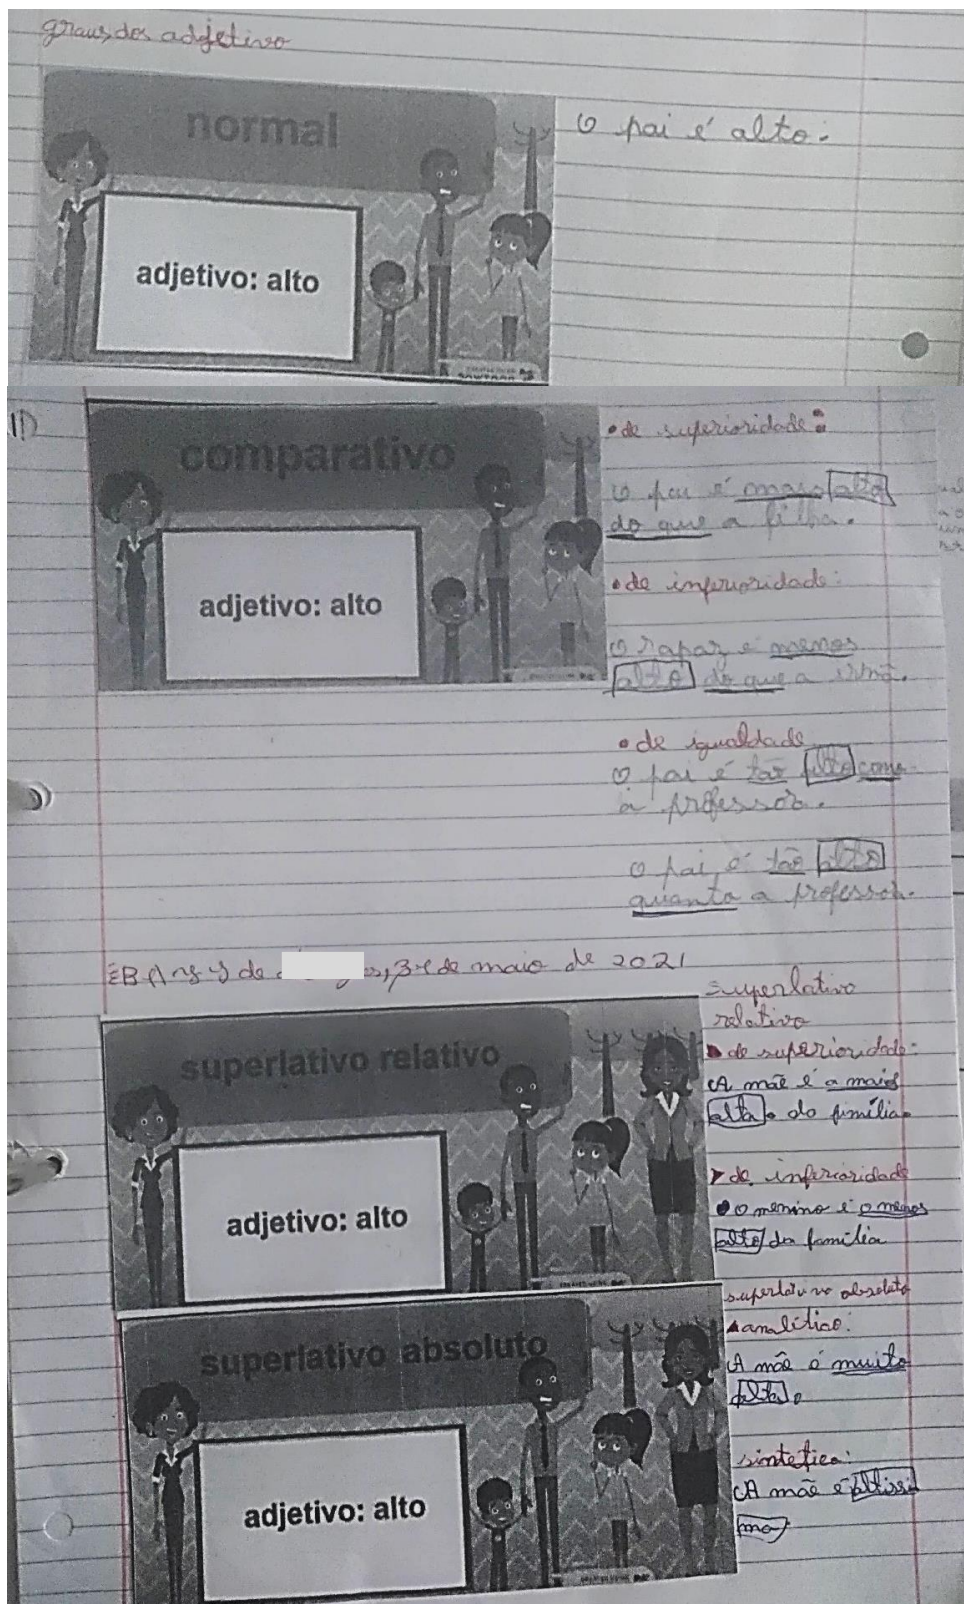 graus dos adjetivo
normal
O pai é alto.
adjetivo: alto
comparativo
adjetivo: alto
• de superioridade:
O pai é mais alto
do que a filha.
• de inferioridade:
O rapaz é menos
alto do que a irmã.
• de igualdade
O pai é tão alto como
a professora.
o pai é tão alto
quanto a professora.
de maio de 2021
superlativo relativo
adjetivo: alto
superlativo
relativo
de superioridade:
A mãe é a mais
alta. do família.
de inferioridade
o menino é o menos
alto da família
superlativo absoluto
adjetivo: alto
superlativo absoluto
analítico:
A mãe é muito
alta.
sintetico:
A mãe é altissi
ma